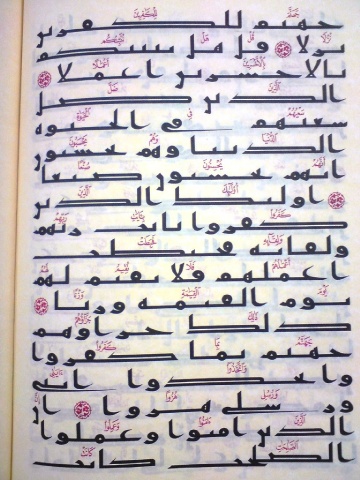 جهنم للكفرين
نزلا قل هل ننبيكم
بالاخسرين اعملا
الذين ضل
سعيهم في الحيوه
الدنيا وهم يحسبون
انهم يحسنون صنعا
اوليك الذين
كفروا بايت ربهم
ولقايه فحبطت
اعملهم فلا نقيم لهم
يوم القيمه وزنا
ذلك جزاوهم
جهنم بما كفروا
واتخذوا ايتي
ورسلي هزوا ان
الذين امنوا وعملوا
الصلحت كانت